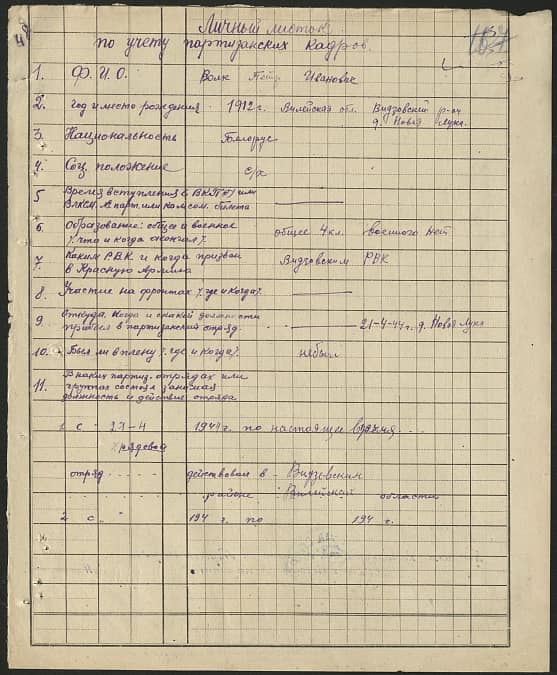 Личный листок
по учету партизанских кадров.
1. Ф. И. О. Волк Петр Иванович
2. год и место рождения 1912 г. Вилейская обл. Видзовский р-он
д. Новая Лука.
3. Национальность Белорус
4. Соц. положение с/х
5 Время вступления в ВКП(б) или
ВЛКСМ. № парт. или комсом. билета
6 Образование: общее и военное
/. что и когда окончил/. общее 4 кл. Военного нет
7. Каким РВК и когда призван
в Красную Армию Видзовским РВК
8. Участие на фронтах /. где и когда/.
9. Откуда, когда и с какой должности
прибыл в партизанский отряд. 21-4-44 г. д. Новая Лука
10. Был ли в плену /. где и когда/. не был
11. В каких партиз. отрядах или
группах состоял занимая
должность и действия отряда
1 с 21-4 1944 г. по настоящие время
рядевой
отряд действовал в Видзовским
районе Вилейской области
2 с " 194 г. по 194 г.